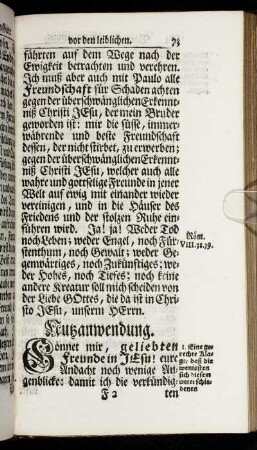 vor den leiblichen. 73
fährten auf dem Wege nach der
Ewigkeit betrachten und verehren.
Ich muß aber auch mit Paulo alle
Freundschaft für Schaden achten
gegen der überschwänglichen Erkennt-
niß Christi JEsu, der mein Bruder
geworden ist: mir die süsse, immer-
währende und beste Freundschaft
dessen, der nicht stirbet, zu erwerben;
gegen der überschwänglichen Erkennt-
niß Christi JEsu, welcher auch alle
wahre und gottselige Freunde in jener
Welt auf ewig mit einander wieder
vereinigen, und in die Häuser des
Friedens und der stolzen Ruhe ein-
führen wird. Ja! ja! Weder Tod
noch Leben; weder Engel, noch Für-
stenthum, noch Gewalt; weder Ge-
genwärtiges, noch Zukünftiges; we-
der Hohes, noch Tiefes; noch keine
andere Kreatur soll mich scheiden von
der Liebe GOttes, die da ist in Chri-
sto JEsu, unserm HErrn.
Röm.
VIII. 38.39.
Nutzanwendung.
Gönnet mir, geliebten
Freunde in JEsu! eure
Andacht noch wenige Au-
genblicke: damit ich die verkündig-
F 2 ten
1. Eine ge-
rechte Kla-
ge, daß die
wenigsten
sich diesem
unterschie-
denen